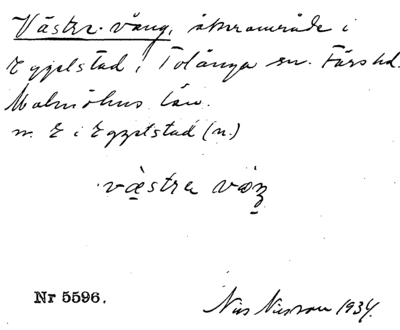 Västra vång, åkerområde i
Eggelstad, Tolånga sn. Färs hd.
Malmöhus län.
m. E i Eggelstad (n.)
væstra våŋ
Nr 5596.
Nils Nilsson 1934.